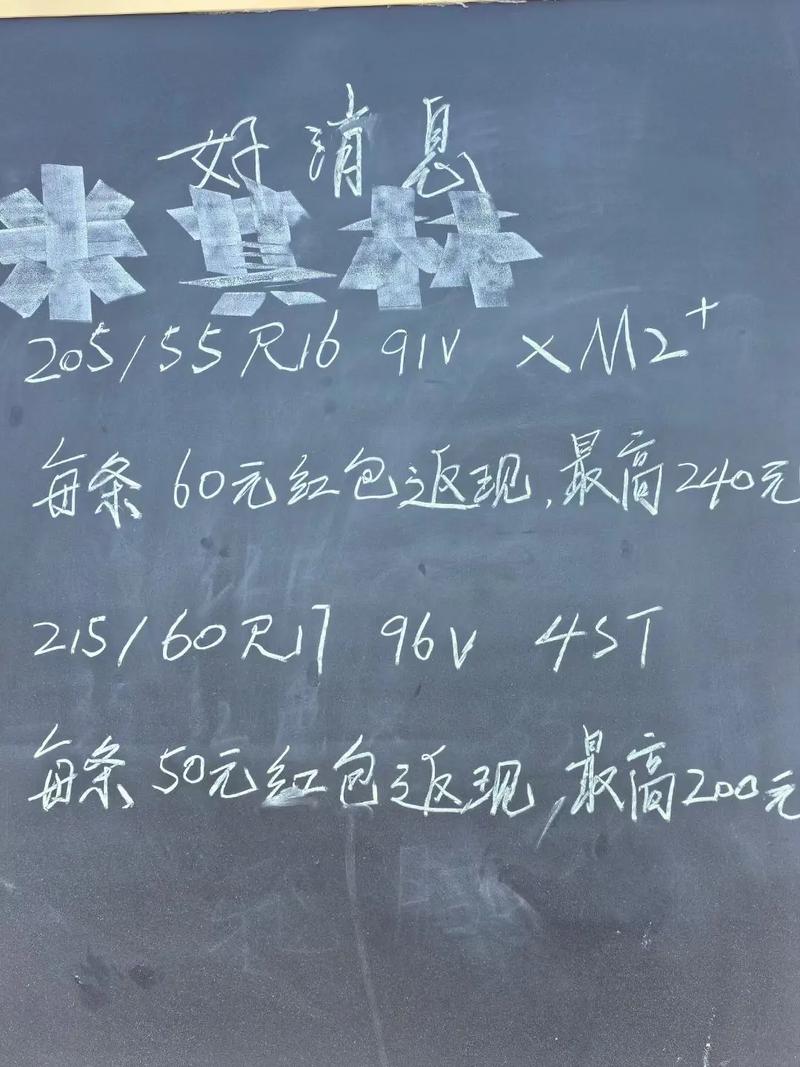 好消息
米其林
205/55R16 91V XM2+
每条 60元红包返现,最高240元
215/60R17 96V 4ST
每条 50元红包返现,最高200元